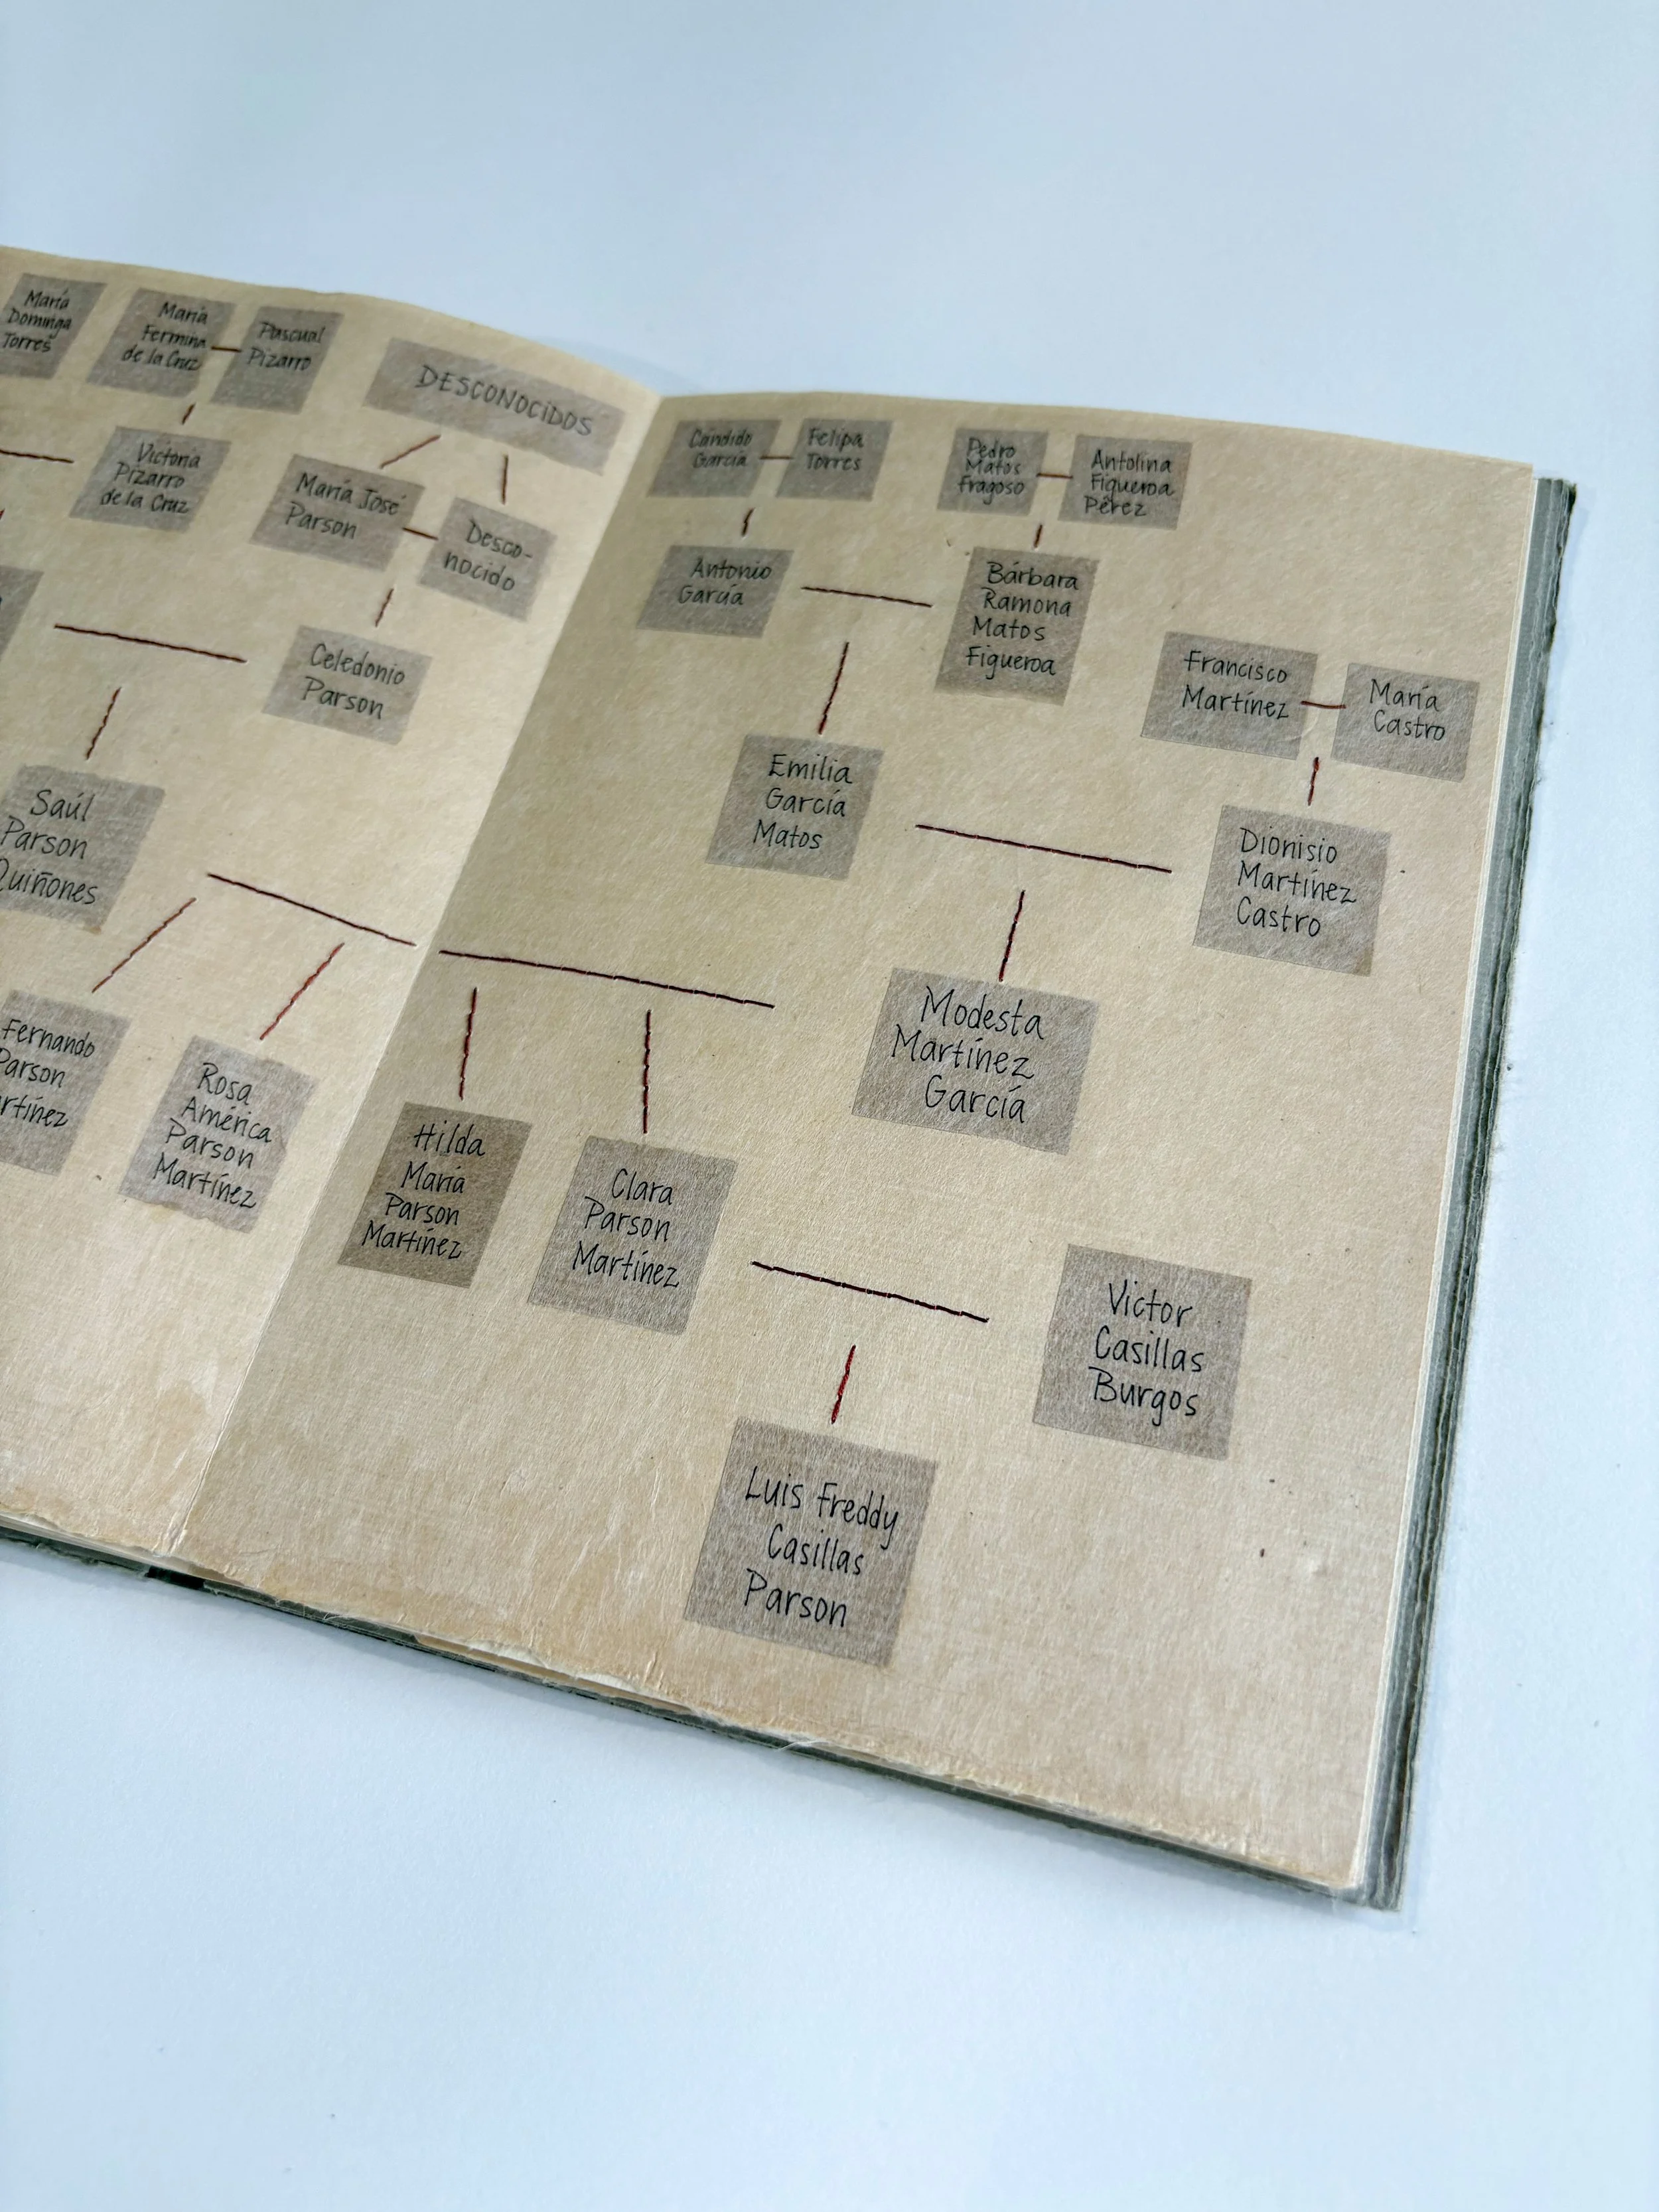 María
Dominga
Torres
María
Fermina
de la Cruz
Pascual
Pizarro
DESCONOCIDOS
Victoria
Pizarro
de la Cruz
María José
Parson
Desco-
nocido
Celedonio
Parson
Saúl
Parson
Quiñones
Fernando
Parson
Rosa
América
Parson
Martínez
Cándido
García
Felipa
Torres
Pedro
Matos
Fragoso
Antolina
Figueroa
Pérez
Antonio
García
Bárbara
Ramona
Matos
Figueroa
Francisco
Martínez
María
Castro
Emilia
García
Matos
Dionisio
Martínez
Castro
Modesta
Martínez
García
Hilda
María
Parson
Martínez
Clara
Parson
Martínez
Victor
Casillas
Burgos
Luis Freddy
Casillas
Parson